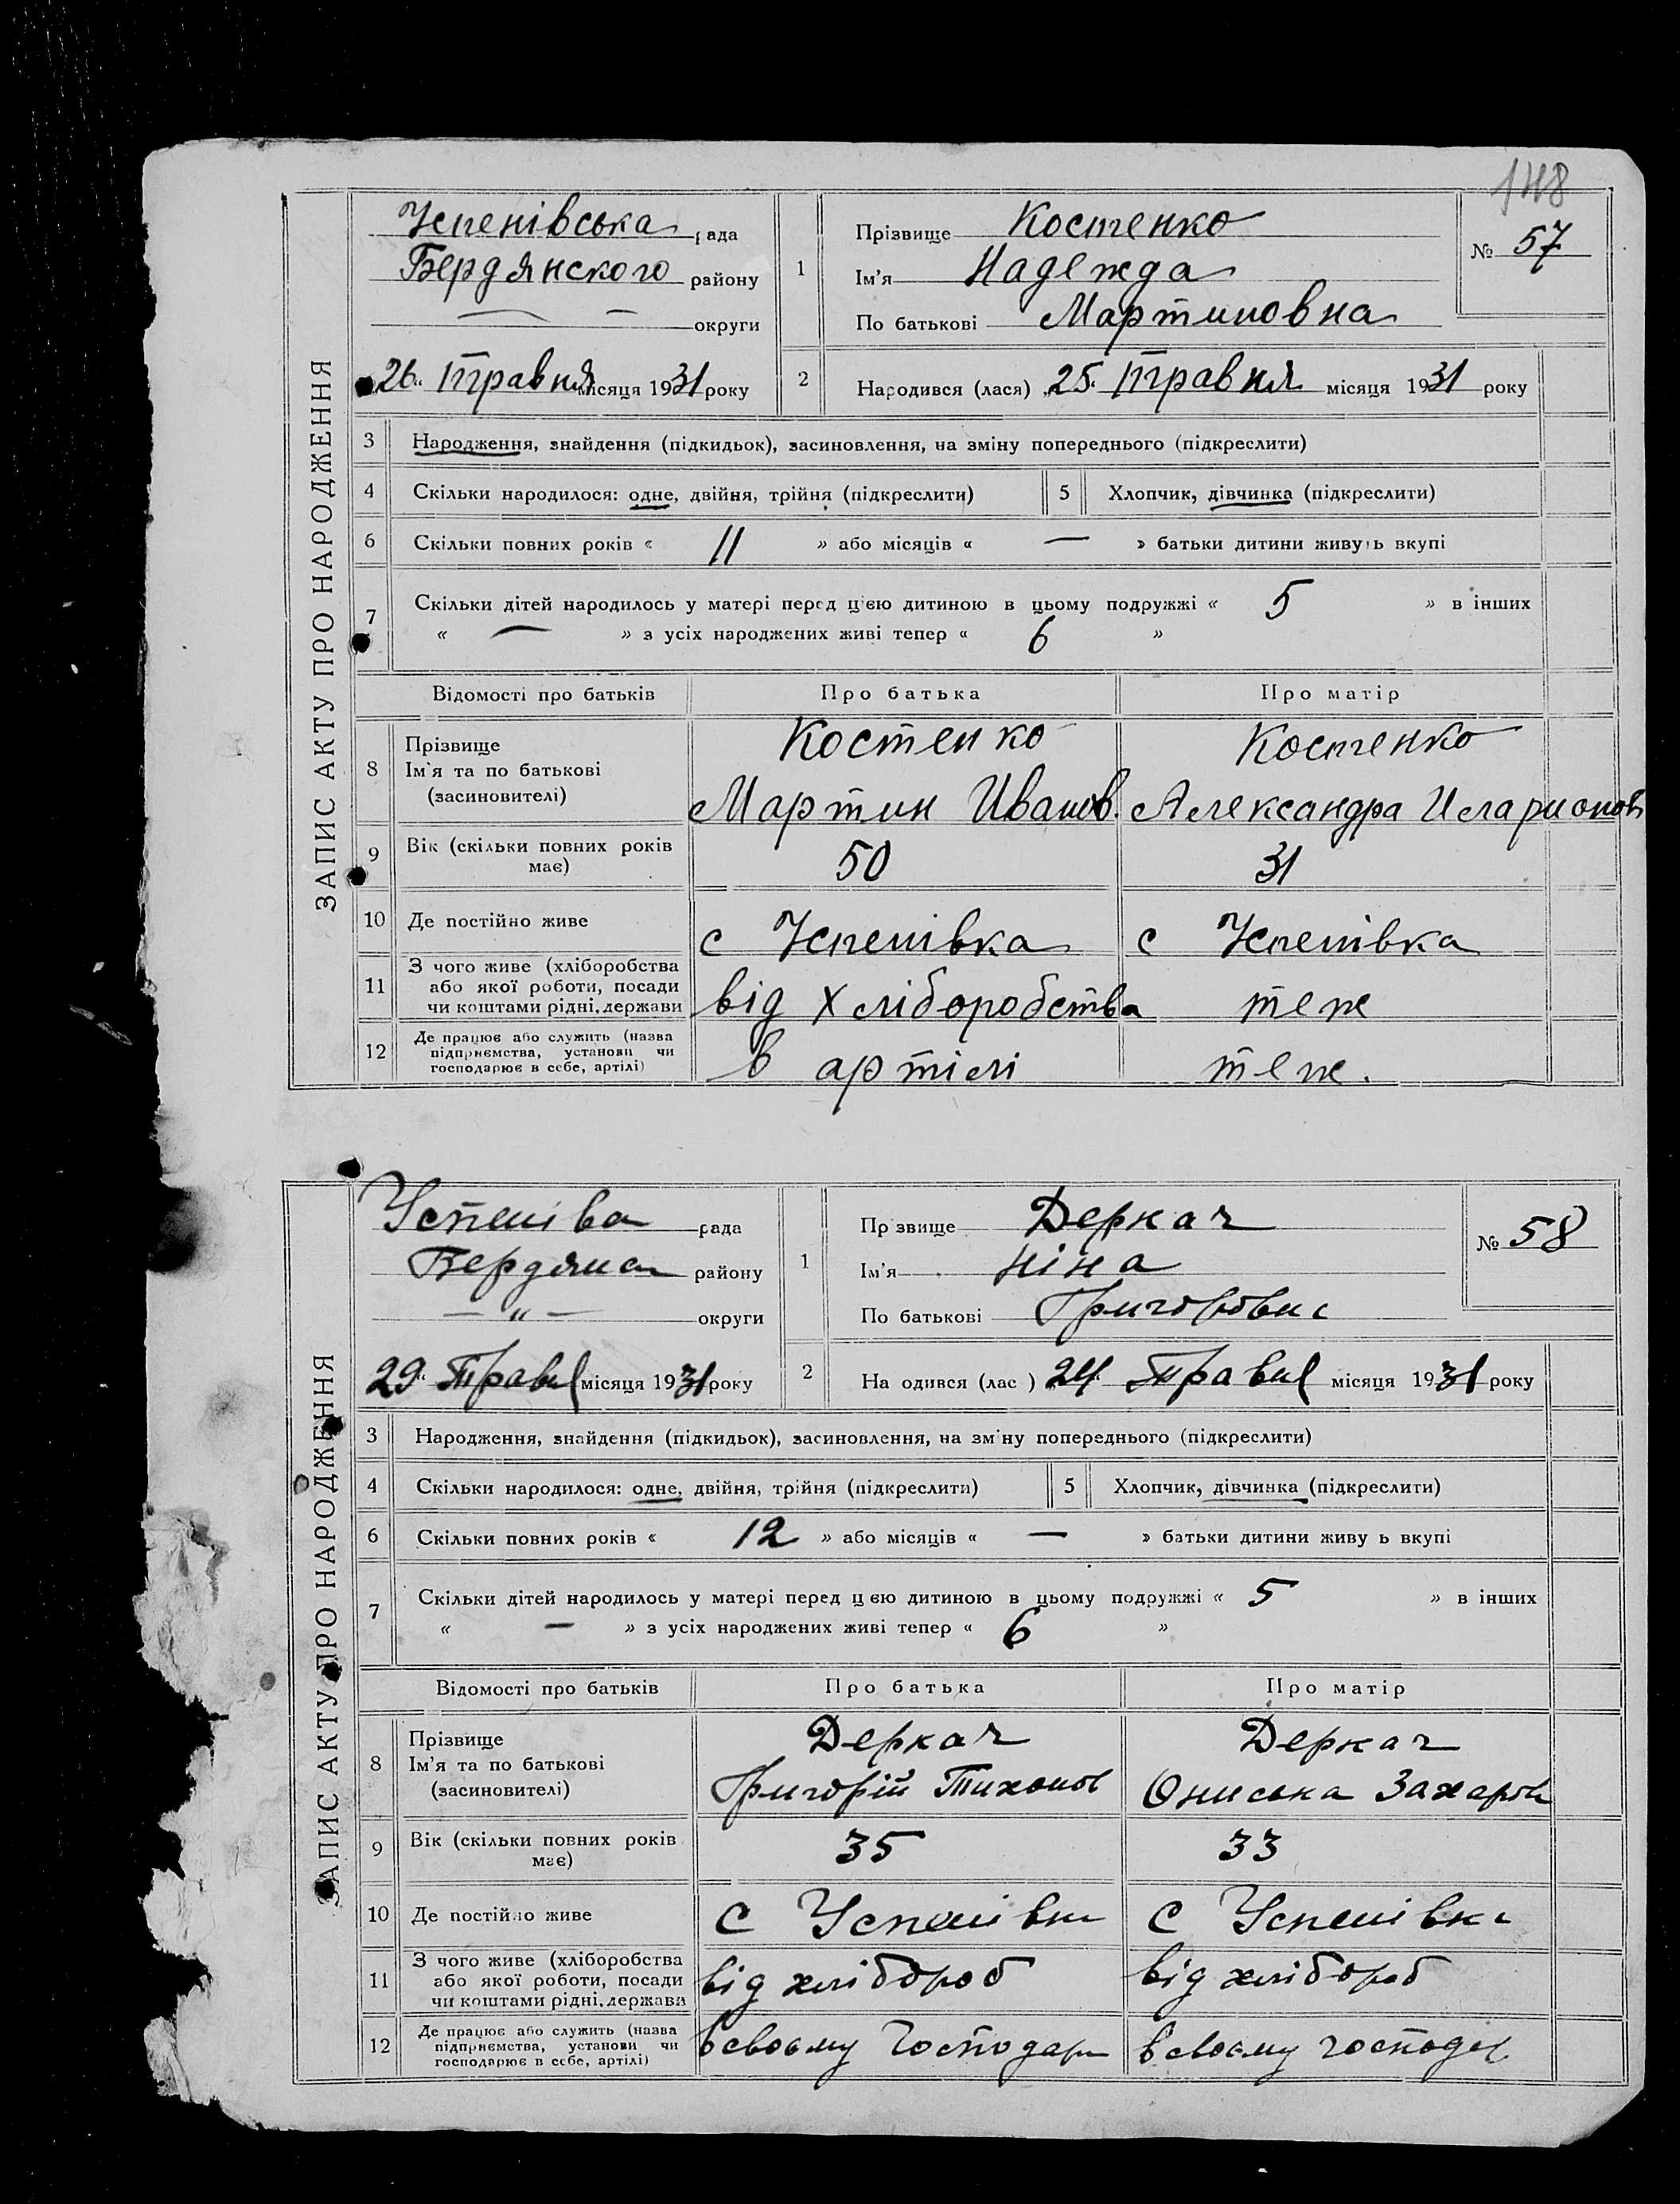 148
ЗАПИС АКТУ ПРО НАРОДЖЕННЯ
Успенівська рада
Бердянского району
— — округи
26 Травня місяця 1931 року
1
Прізвище Костенко
Ім'я Надежда
По батькові Мартиновна
№ 57
2 Народився (лася) 25 Травня місяця 1931 року
3 Народження, знайдення (підкидьок), засиновлення, на зміну попереднього (підкреслити)
4 Скільки народилося: одне, двійня, трійня (підкреслити) 5 Хлопчик, дівчинка (підкреслити)
6 Скільки повних років « 11 » або місяців « — » батьки дитини живуть вкупі
7 Скільки дітей народилось у матері перед цією дитиною в цьому подружжі « 5 » в інших
« — » з усіх народжених живі тепер « 6 »
Відомості про батьків Про батька Про матір
8 Прізвище Костенко Костенко
Ім'я та по батькові
(засиновителі) Мартин Иванов. Александра Иларионов
9 Вік (скільки повних років
має) 50 31
10 Де постійно живе с Успенівка с Успенівка
11 З чого живе (хліборобства
або якої роботи, посади
чи коштами рідні, держави від хліборобства теж
12 Де працює або служить (назва
підприємства, установи чи
господарює в себе, артілі) в артілі теж.
ЗАПИС АКТУ ПРО НАРОДЖЕННЯ
Успеніва рада
Бердянск району
— " — округи
29 Травня місяця 1931 року
1
Пр звище Деркач
Ім'я Ніна
По батькові Григоровна
№ 58
2 На одився (лас ) 24 Травня місяця 1931 року
3 Народження, знайдення (підкидьок), засиновлення, на зм ну попереднього (підкреслити)
4 Скільки народилося: одне, двійня, трійня (підкреслити) 5 Хлопчик, дівчинка (підкреслити)
6 Скільки повних років « 12 » або місяців « — » батьки дитини живу ь вкупі
7 Скільки дітей народилось у матері перед ц єю дитиною в цьому подружжі « 5 » в інших
« — » з усіх народжених живі тепер « 6 »
Відомості про батьків Про батька Про матір
8 Прізвище Деркач Деркач
Ім'я та по батькові
(засиновителі) Григорій Тихонов Ониська Захаров
9 Вік (скільки повних років
має) 35 33
10 Де постійно живе с Успенівка с Успенівка
11 З чого живе (хліборобства
або якої роботи, посади
чи коштами рідні, держави від хлібороб від хлібороб
12 Де працює або служить (назва
підприємства, установи чи
господарює в себе, артілі) в своєму господар в своєму господар